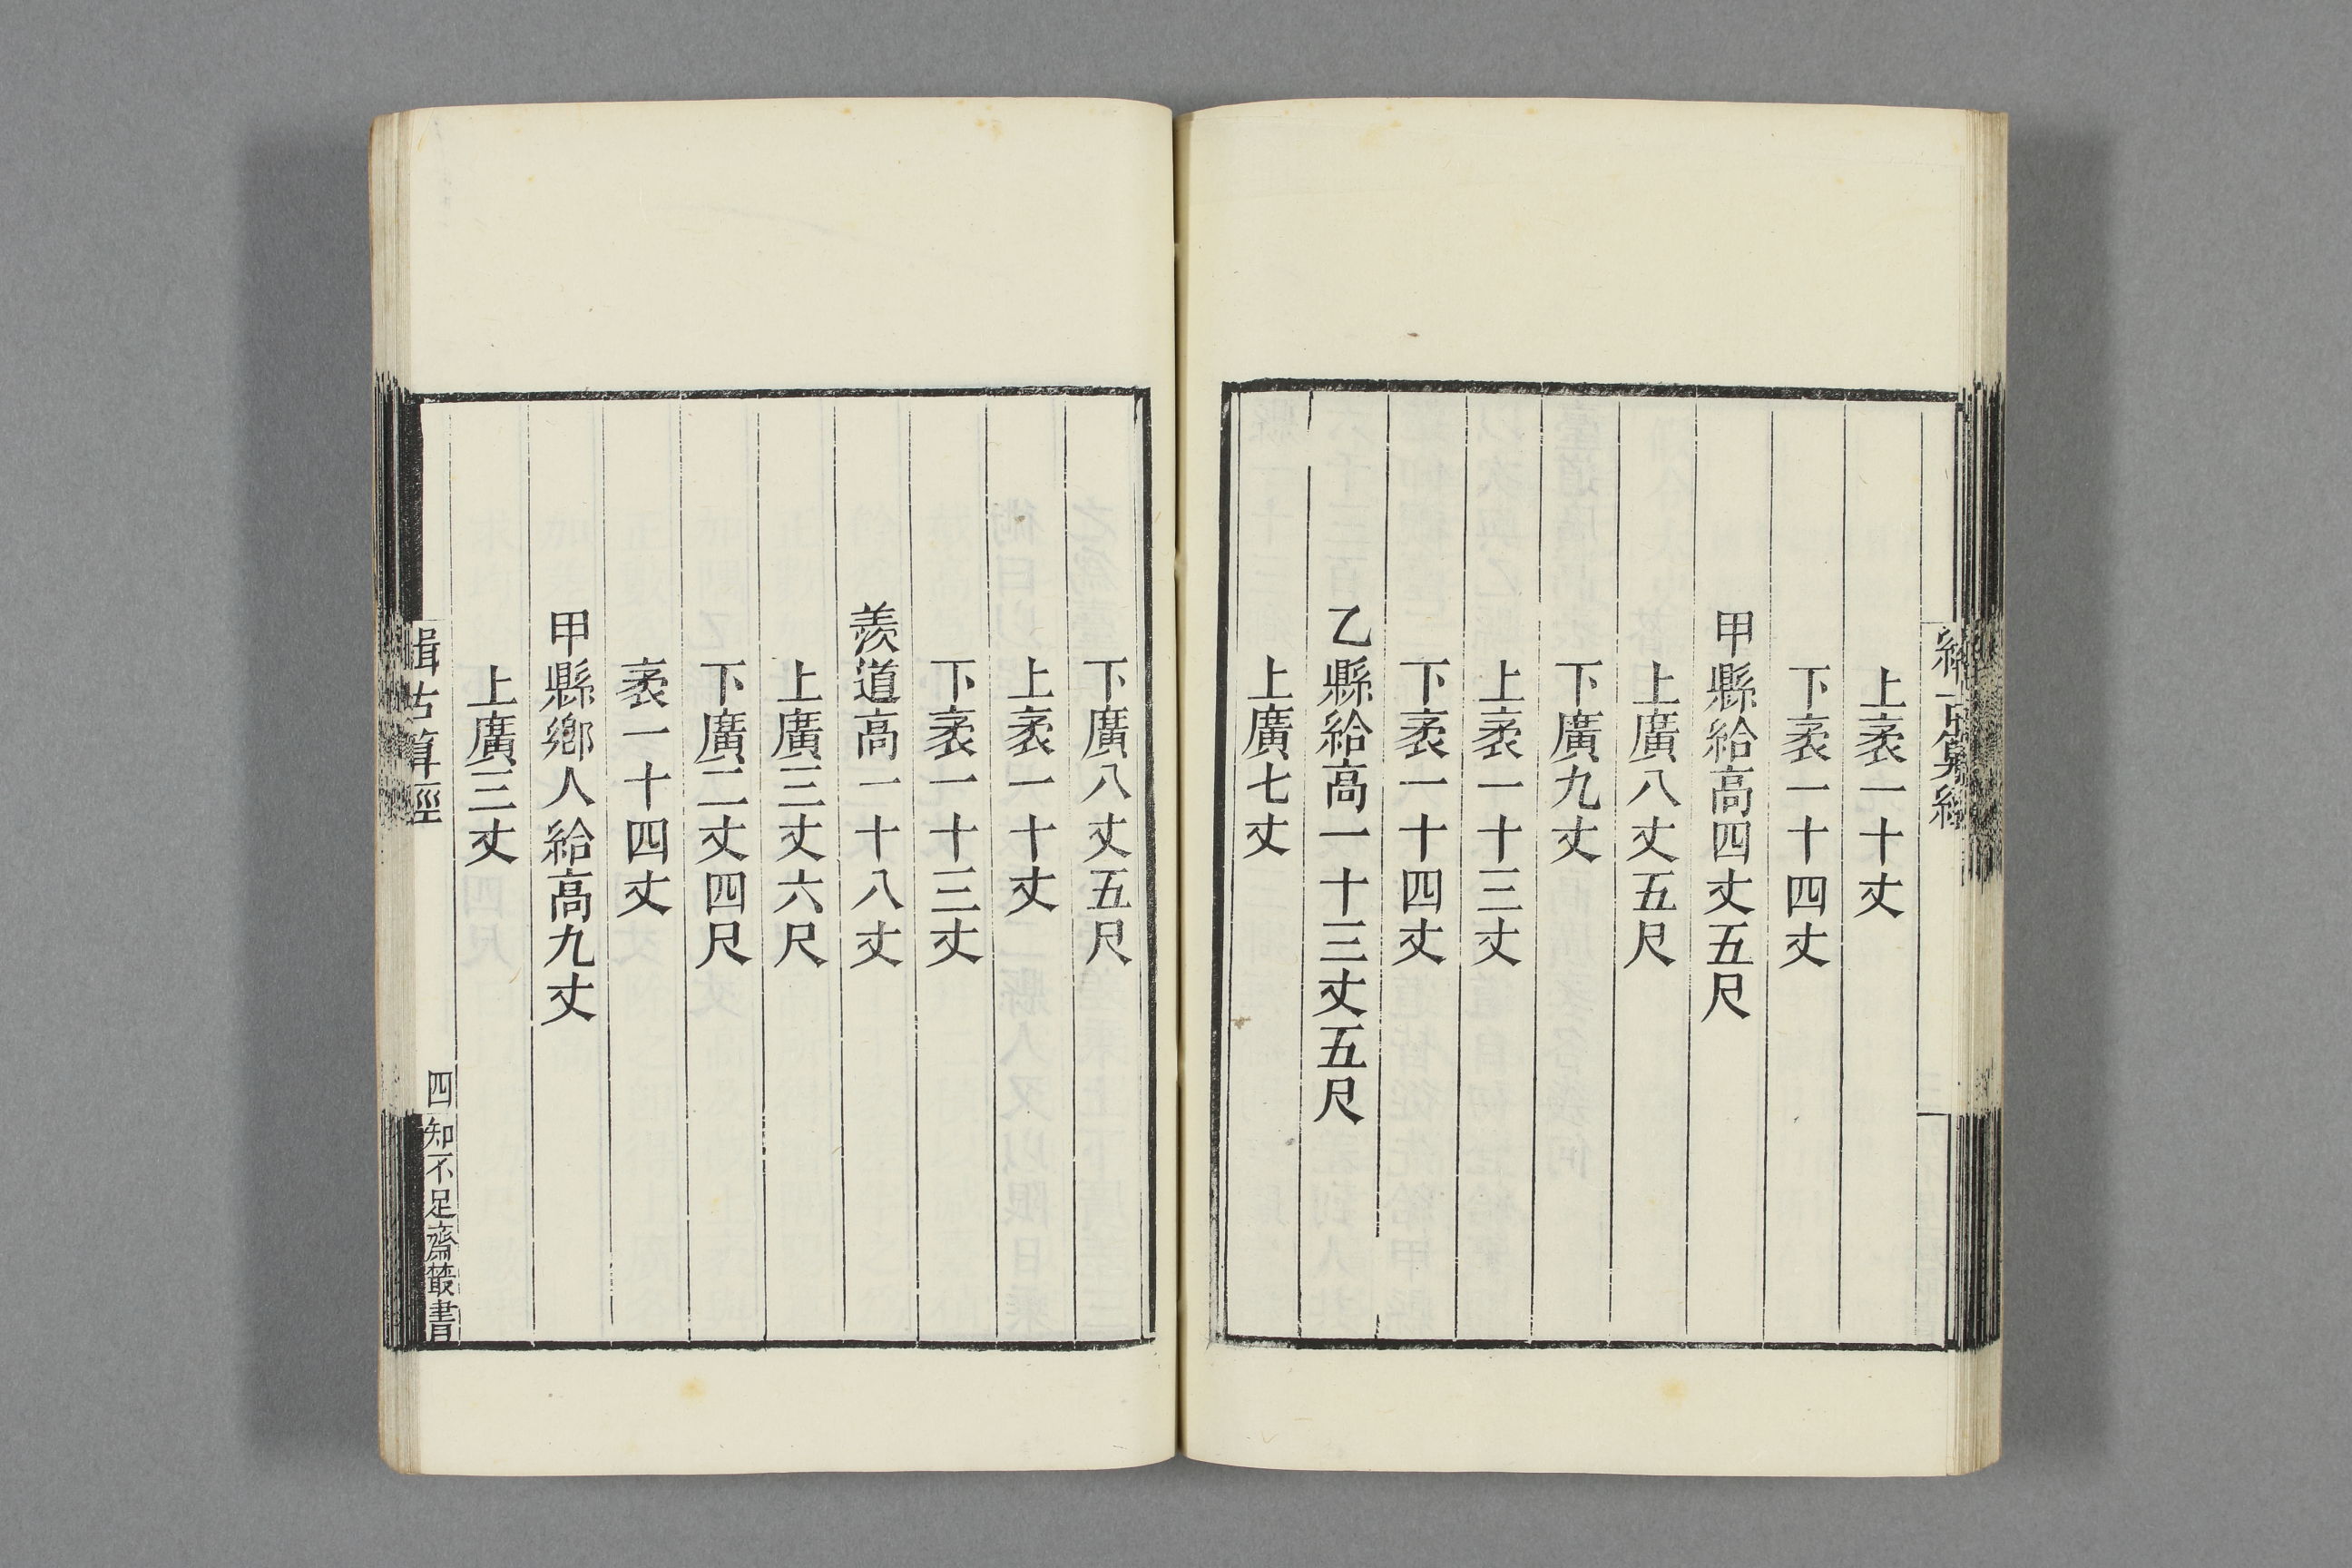 上袤一十丈
下袤一十四丈
甲縣給高四丈五尺
上廣八丈五尺
下廣九丈
上袤一十三丈
下袤一十四丈
乙縣給高一十三丈五尺
上廣七丈
下廣八丈五尺
上袤一十丈
下袤一十三丈
羨道高一十八丈
上廣三丈六尺
下廣二丈四尺
袤一十四丈
甲縣鄉人給高九丈
上廣三丈
緝古算經
四
知不足齋叢書